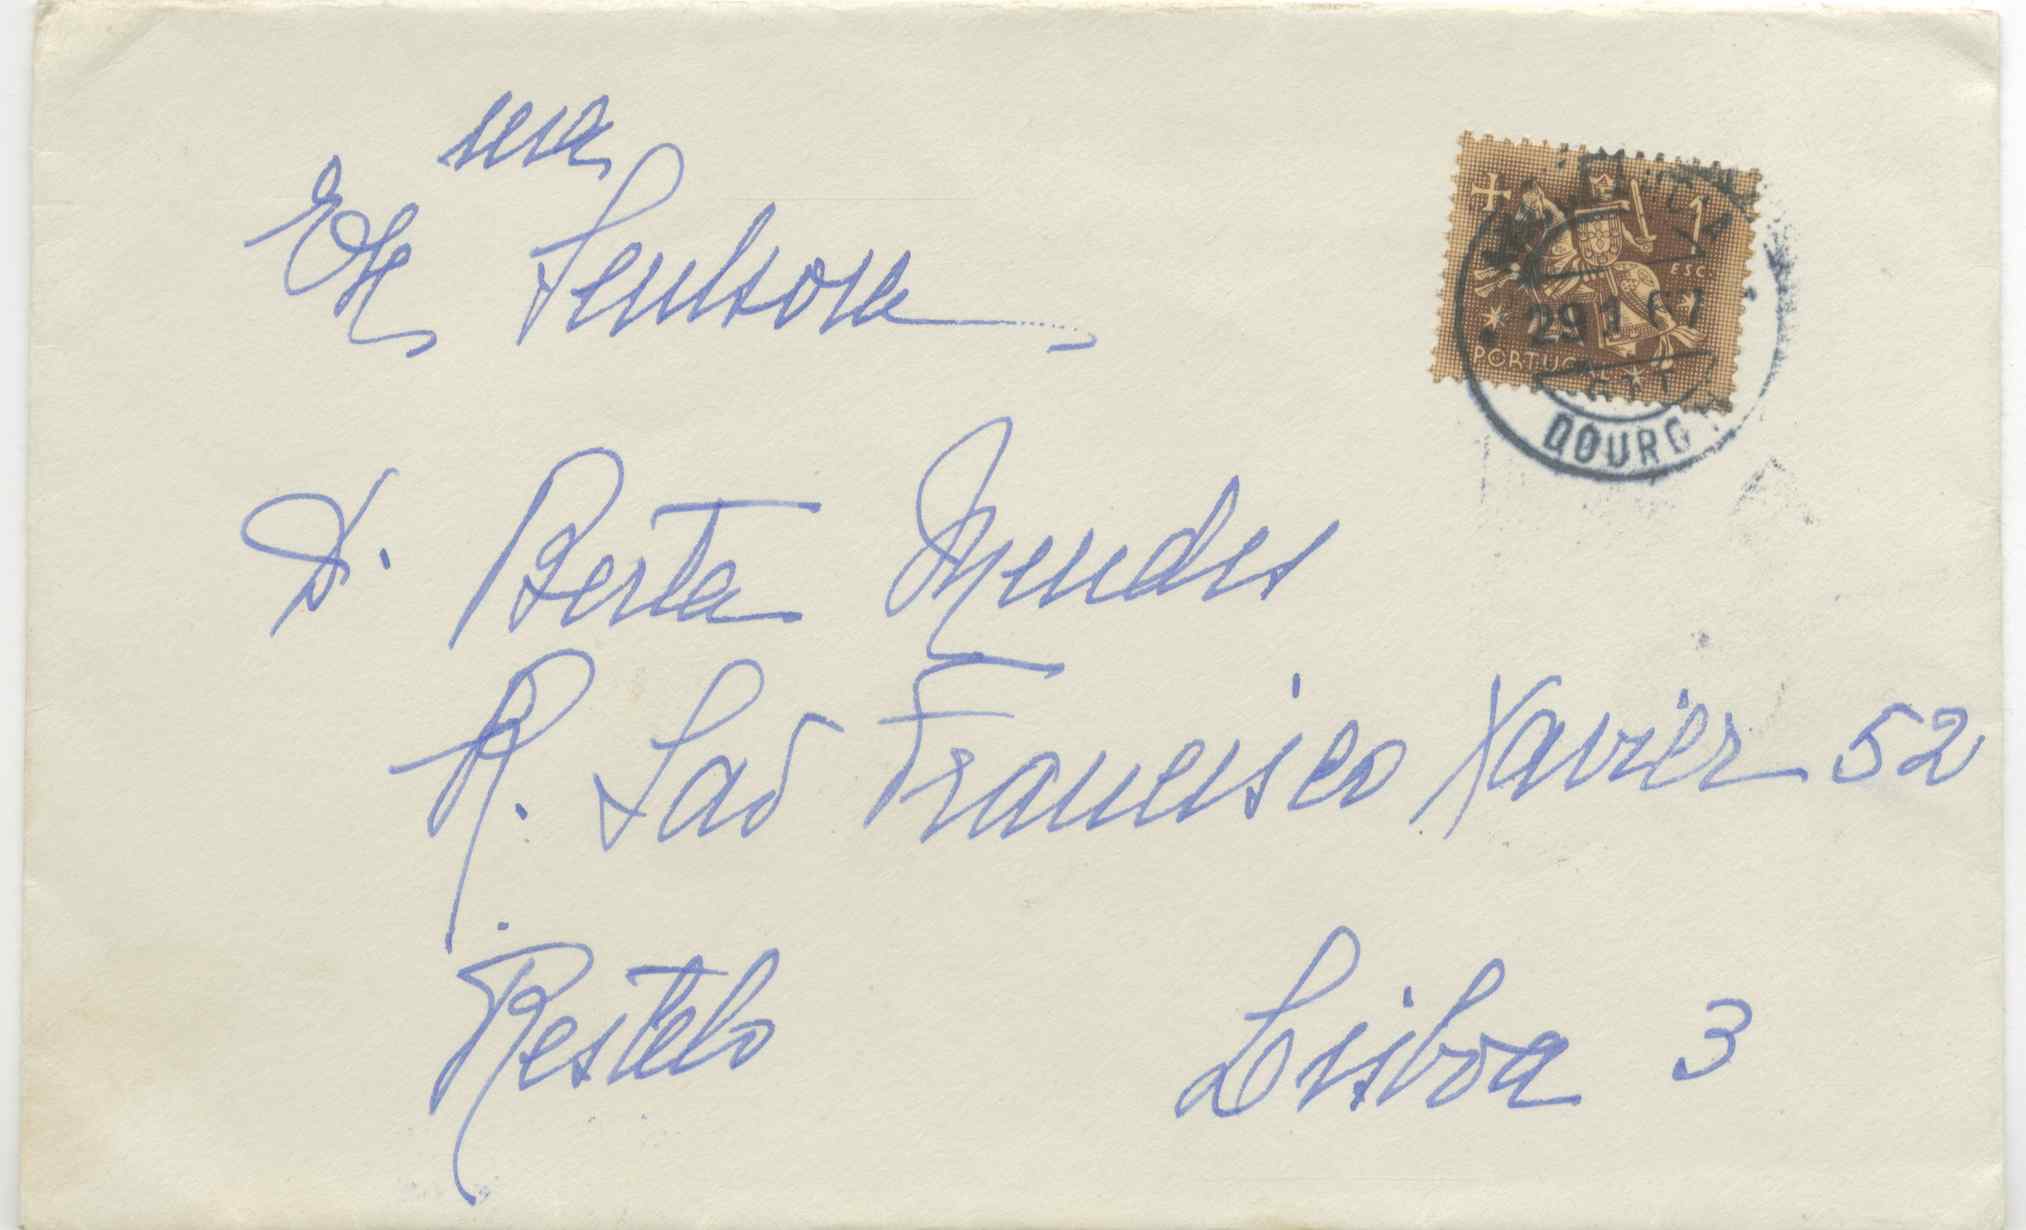 Exma Senhora
D. Berta Mendes
R. São Francisco Xavier 52
Restelo Lisboa 3
1
ESC.
PORTUGAL
29 1 67
DOURO